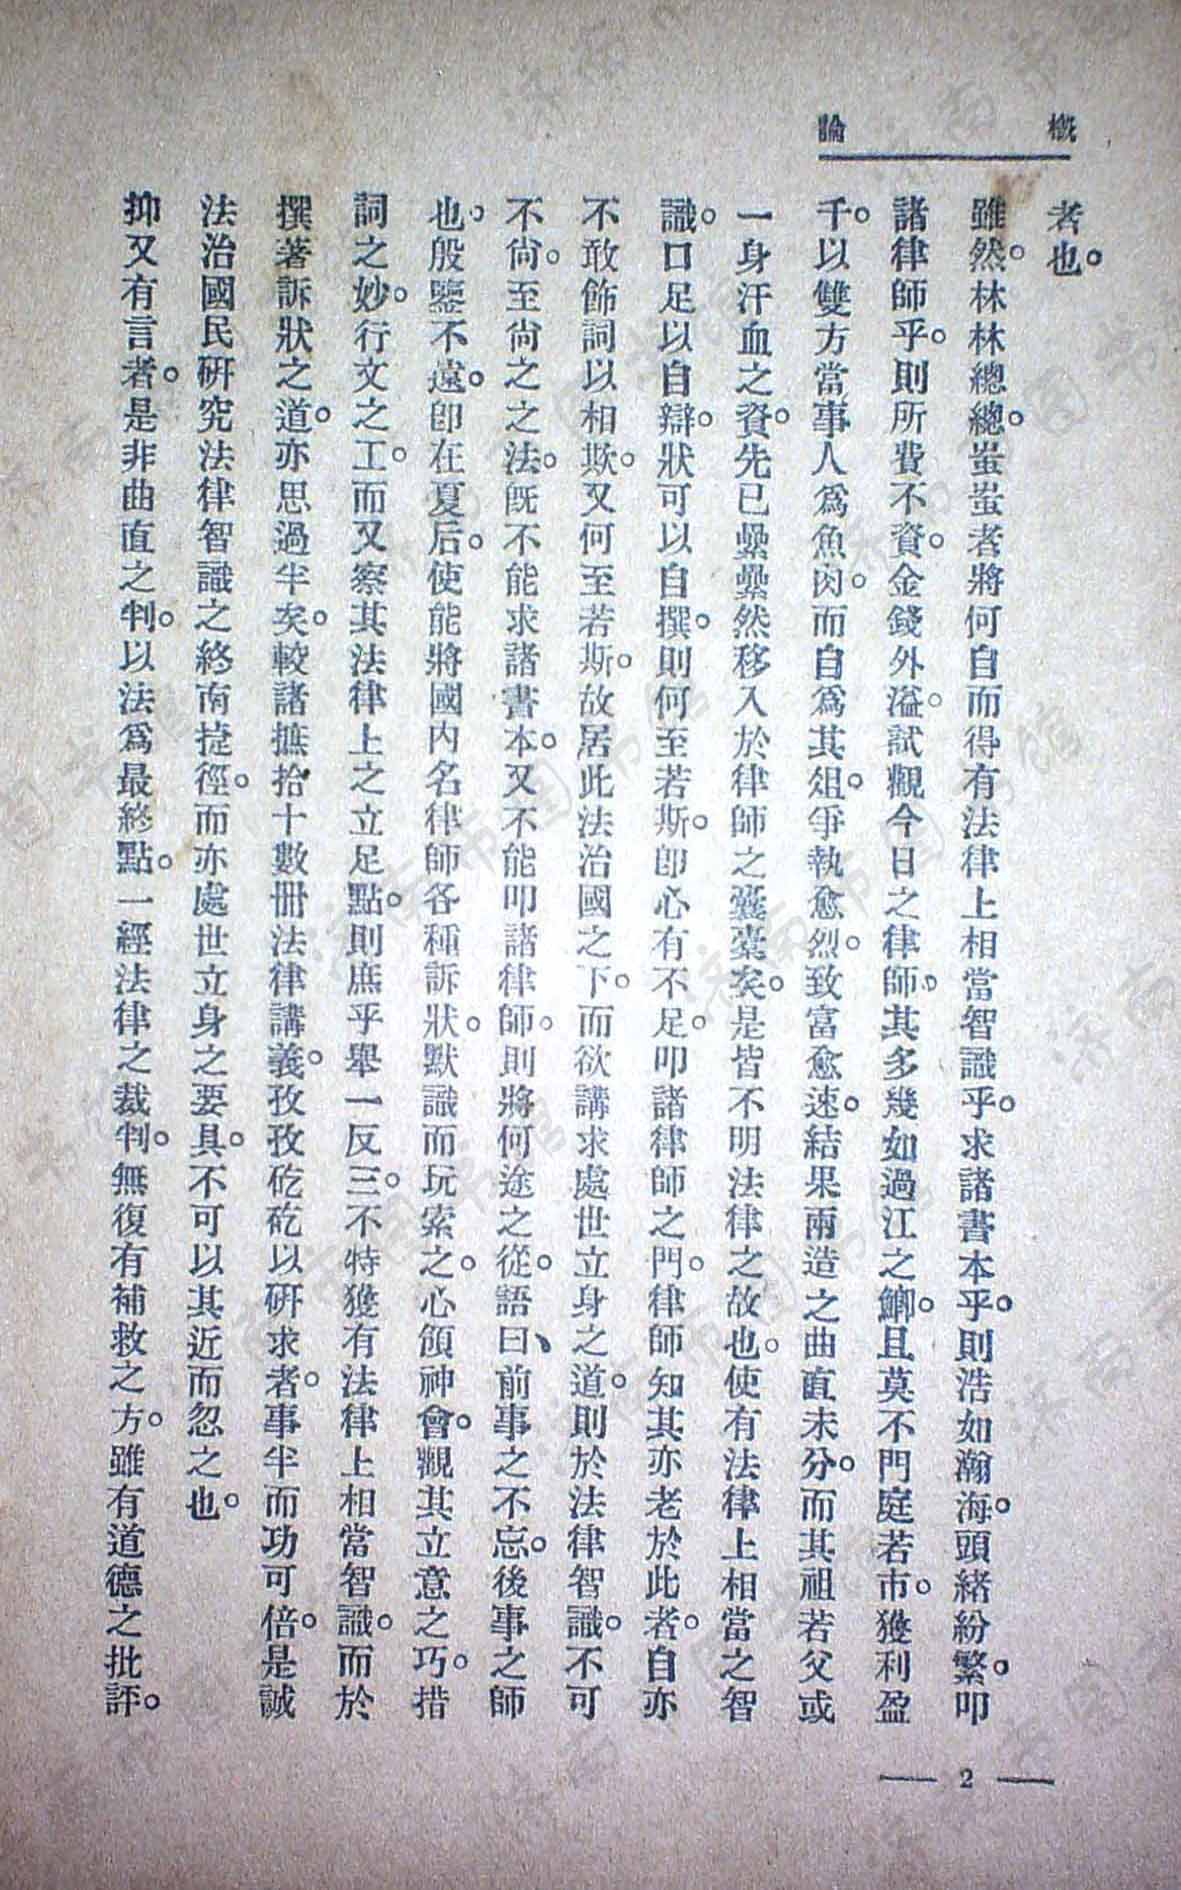 概論
者也。
雖然。林林總總。蚩蚩者將何自而得有法律上相當智識乎。求諸書本乎。則浩如瀚海。頭緒紛繁。叩
諸律師乎。則所費不資。金錢外溢。試觀今日之律師。其多幾如過江之鯽。且莫不門庭若市。獲利盈
千。以雙方當事人爲魚肉。而自爲其俎。爭執愈烈。致富愈速。結果兩造之曲直未分。而其祖若父或
一身汗血之資。先已纍纍然移入於律師之囊橐矣。是皆不明法律之故也。使有法律上相當之智
識。口足以自辯。狀可以自撰。則何至若斯。卽心有不足。叩諸律師之門。律師知其亦老於此者。自亦
不敢飾詞以相欺。又何至若斯。故居此法治國之下。而欲講求處世立身之道。則於法律智識。不可
不尙。至尙之之法。旣不能求諸書本。又不能叩諸律師。則將何途之從。語曰、前事之不忘。後事之師
也。殷鑒不遠。卽在夏后。使能將國内名律師各種訴狀。默識而玩索之。心領神會。觀其立意之巧。措
詞之妙。行文之工。而又察其法律上之立足點。則庶乎舉一反三。不特獲有法律上相當智識。而於
撰著訴狀之道。亦思過半矣。較諸摭拾十數册法律講義。孜孜矻矻以研求者。事半而功可倍。是誠
法治國民研究法律智識之終南捷徑。而亦處世立身之要具。不可以其近而忽之也。
抑又有言者。是非曲直之判。以法爲最終點。一經法律之裁判。無復有補救之方。雖有道德之批評。
— 2 —
济南市图书馆